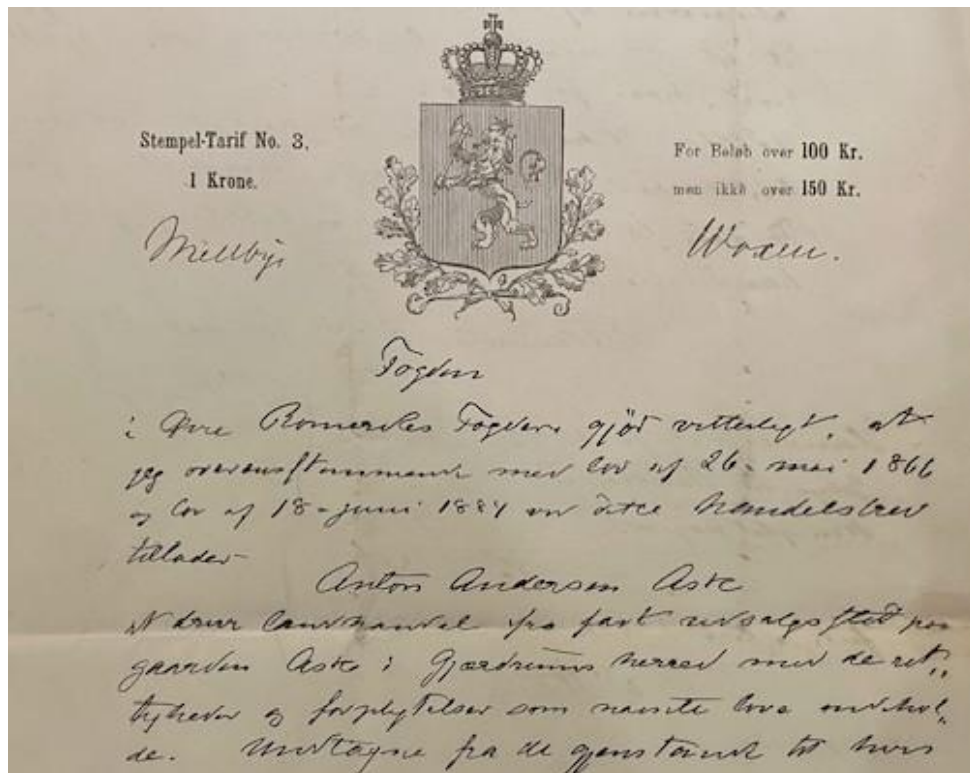 Stempel-Tarif No. 3.
1 Krone.
For Beløb over 100 Kr.
men ikke over 150 Kr.
Mellbye
Woxen.
Fogden
i Øvre Romerikes Fogderi gjör vitterligt, at
jeg overensstemmende med lov af 26. mai 1866
og lov af 18. juni 1884 ved dette handelsbrev
tillader
Anton Andersen Ask
at drive landhandel fra fast udsalgssted paa
gaarden Ask i Gjærdrums herred med de ret„
tigheder og forpligtelser som nævnte love indehol„
de. Undtagne fra de gjenstande til hvis